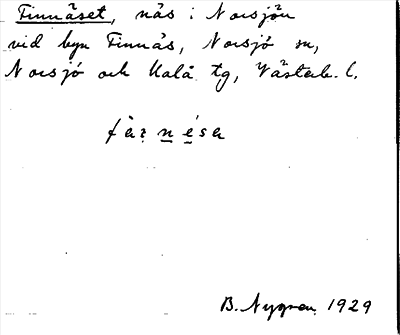 Finnäset, näs i Norsjön
vid byn Finnäs, Norsjö sn,
Norsjö och Malå tg, Västerb. l.
B. Nygren 1929